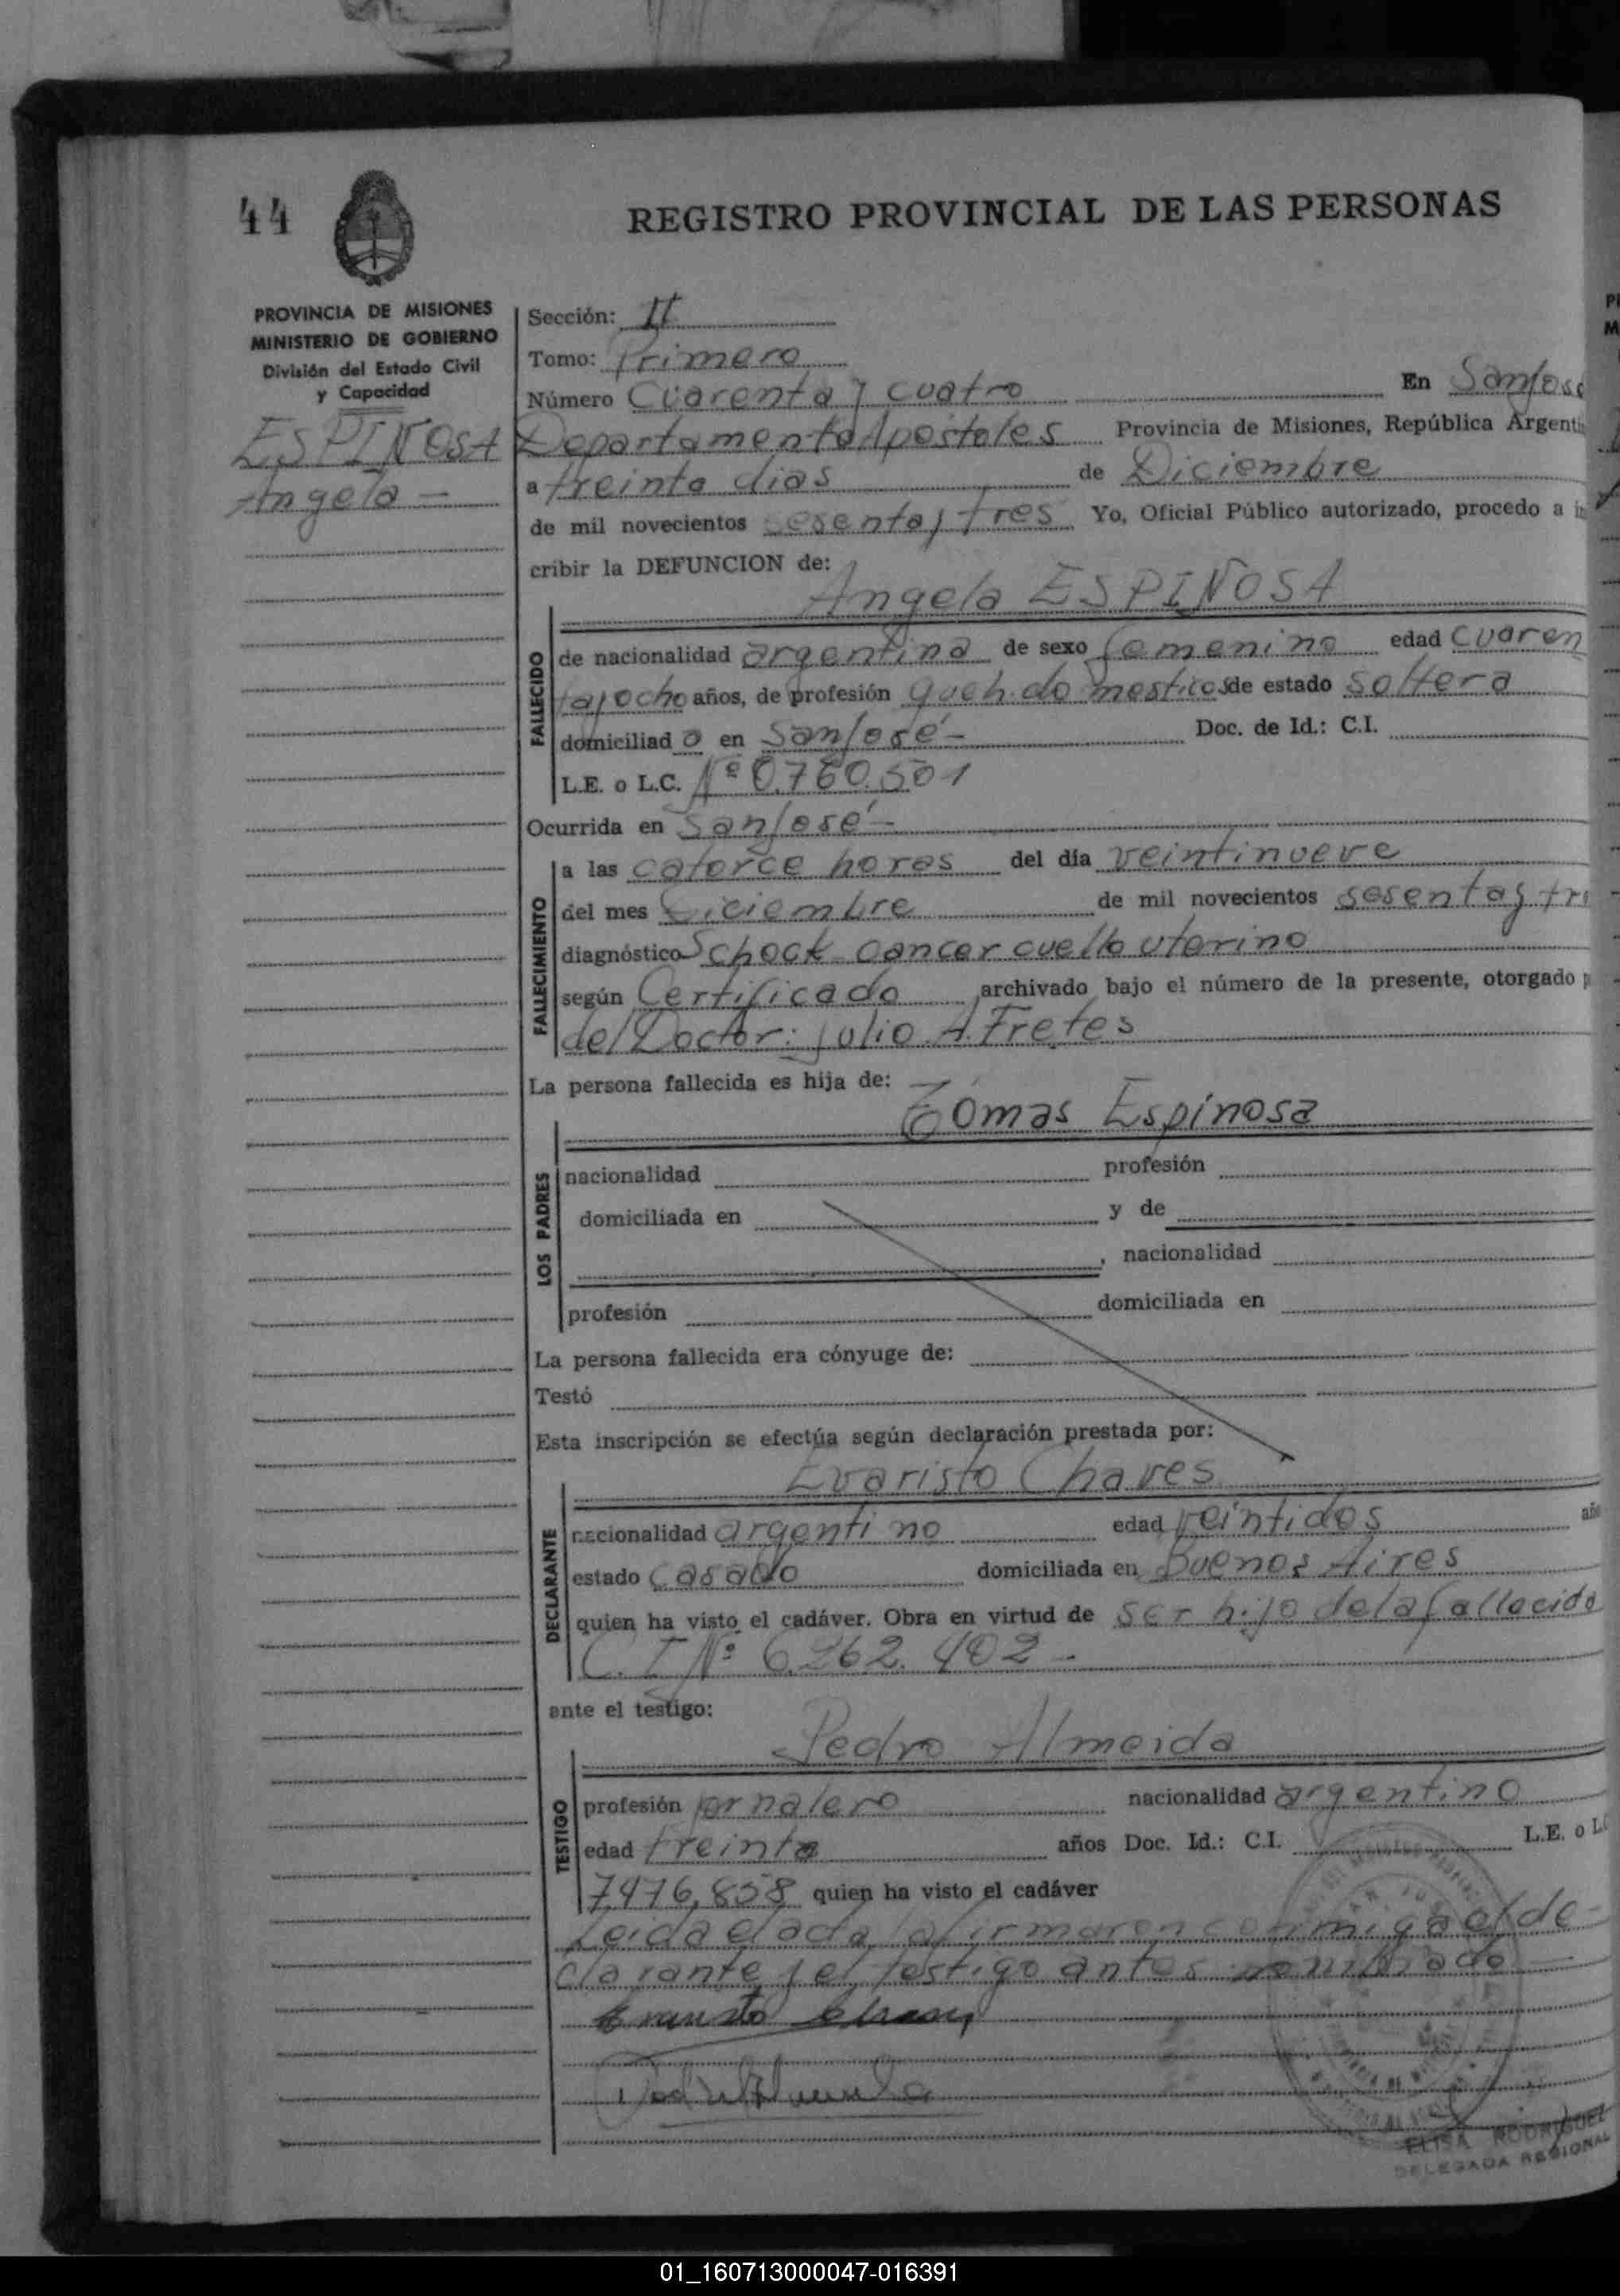 44
REGISTRO PROVINCIAL DE LAS PERSONAS
PROVINCIA DE MISIONES
MINISTERIO DE GOBIERNO
División del Estado Civil
y Capacidad
ESPIÑOSA
Angela —
Sección: II
Tomo: Primero
Número Cuarenta y cuatro En San José
Departamento Apostoles Provincia de Misiones, República Argenti
a treinta dias de Diciembre
de mil novecientos sesenta y tres Yo, Oficial Público autorizado, procedo a in
cribir la DEFUNCION de:
Angela ESPIÑOSA
FALLECIDO
de nacionalidad argentina de sexo femenino edad cuaren
ta y ocho años, de profesión queh. domesticos de estado soltera
domiciliad a en San José — Doc. de Id.: C.I.
L.E. o L.C. Nº 0.760.501
Ocurrida en San José —
FALLECIMIENTO
a las catorce horas del día veintinueve
del mes Diciembre de mil novecientos sesenta y tr
diagnóstico Schock cancer cuello uterino
según Certificado archivado bajo el número de la presente, otorgado p
del Doctor: Julio A. Fretes
La persona fallecida es hija de:
Tomas Espinosa
LOS PADRES
nacionalidad profesión
domiciliada en y de
, nacionalidad
profesión domiciliada en
La persona fallecida era cónyuge de:
Testó
Esta inscripción se efectúa según declaración prestada por:
Evaristo Chaves
DECLARANTE
nacionalidad argentino edad veintidos añ
estado casado domiciliada en Buenos Aires
quien ha visto el cadáver. Obra en virtud de ser hijo de la fallecida
C.I Nº 6.262.402 —
ante el testigo:
Pedro Almeida
TESTIGO
profesión jornalero nacionalidad argentino
edad treinta años Doc. Id.: C.I. L.E. o L
7.476,858 quien ha visto el cadáver
Leida el acta la firmaron conmigo el de-
clarante y el testigo antes nombrado —
ELISA RODRIGUEZ
DELEGADA REGIONAL
01_160713000047-016391